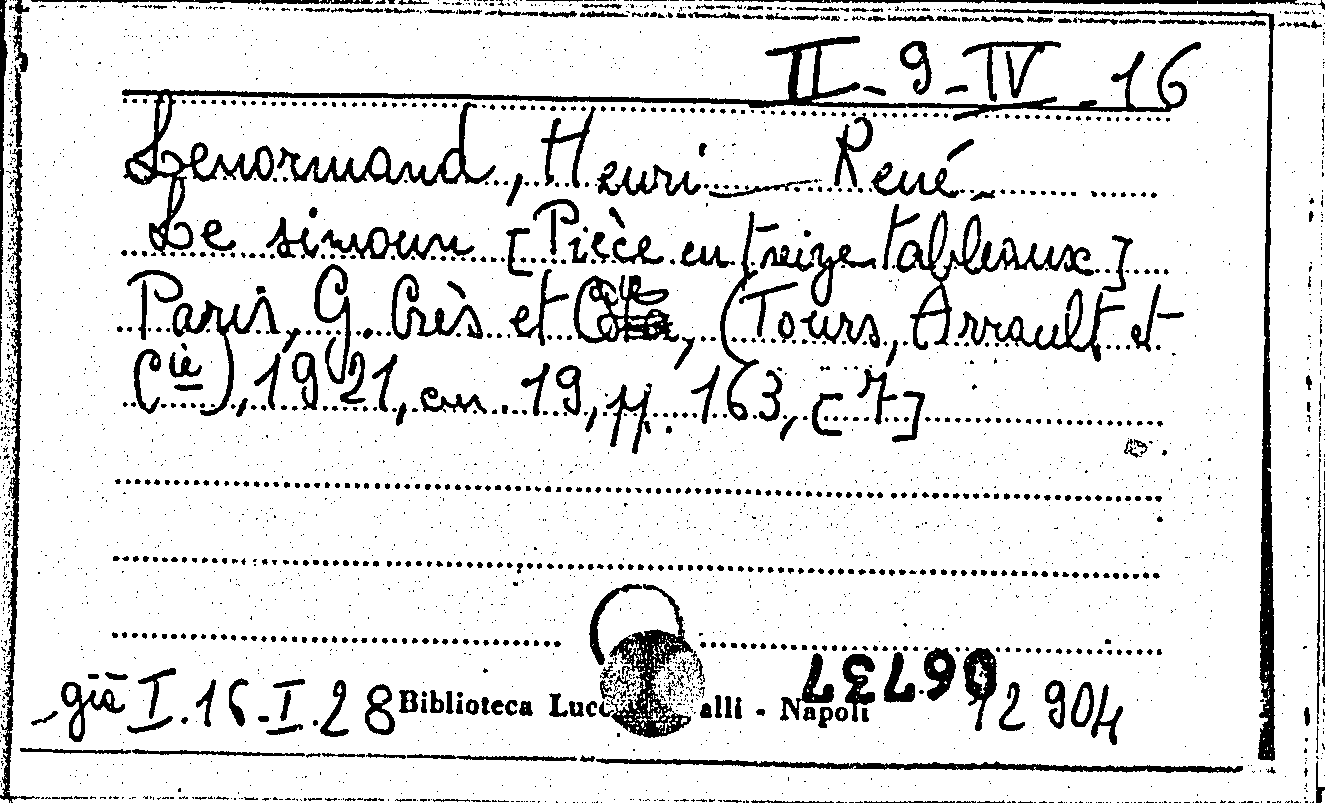 II-9-IV-16
Lenormand, Henri-René
Le simoun [Pièce en treize tableaux]
Paris, G. Crès et Cie, (Tours, Arrault et
Cie), 1921, cm. 19, pp. 163, [7]
già I.16-I.28 Biblioteca Luc alli - Napoli 12904